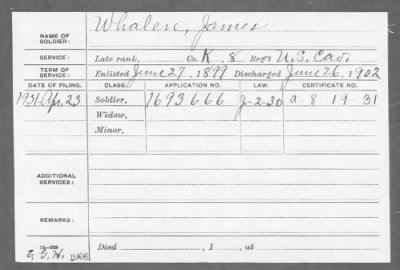 NAME OF SOLDIER: Whalen, James
SERVICE: Late rank, Co. K. 8 Reg't U.S. Cav.
TERM OF SERVICE: Enlisted June 27, 1899 Discharged June 26, 1902
DATE OF FILING. CLASS. APPLICATION NO. LAW. CERTIFICATE NO.
1931 Apr. 23 Soldier, 1693666 J-2-30 a-8 19-31
Widow,
Minor,
ADDITIONAL SERVICES:
REMARKS:
Died , 1 , at